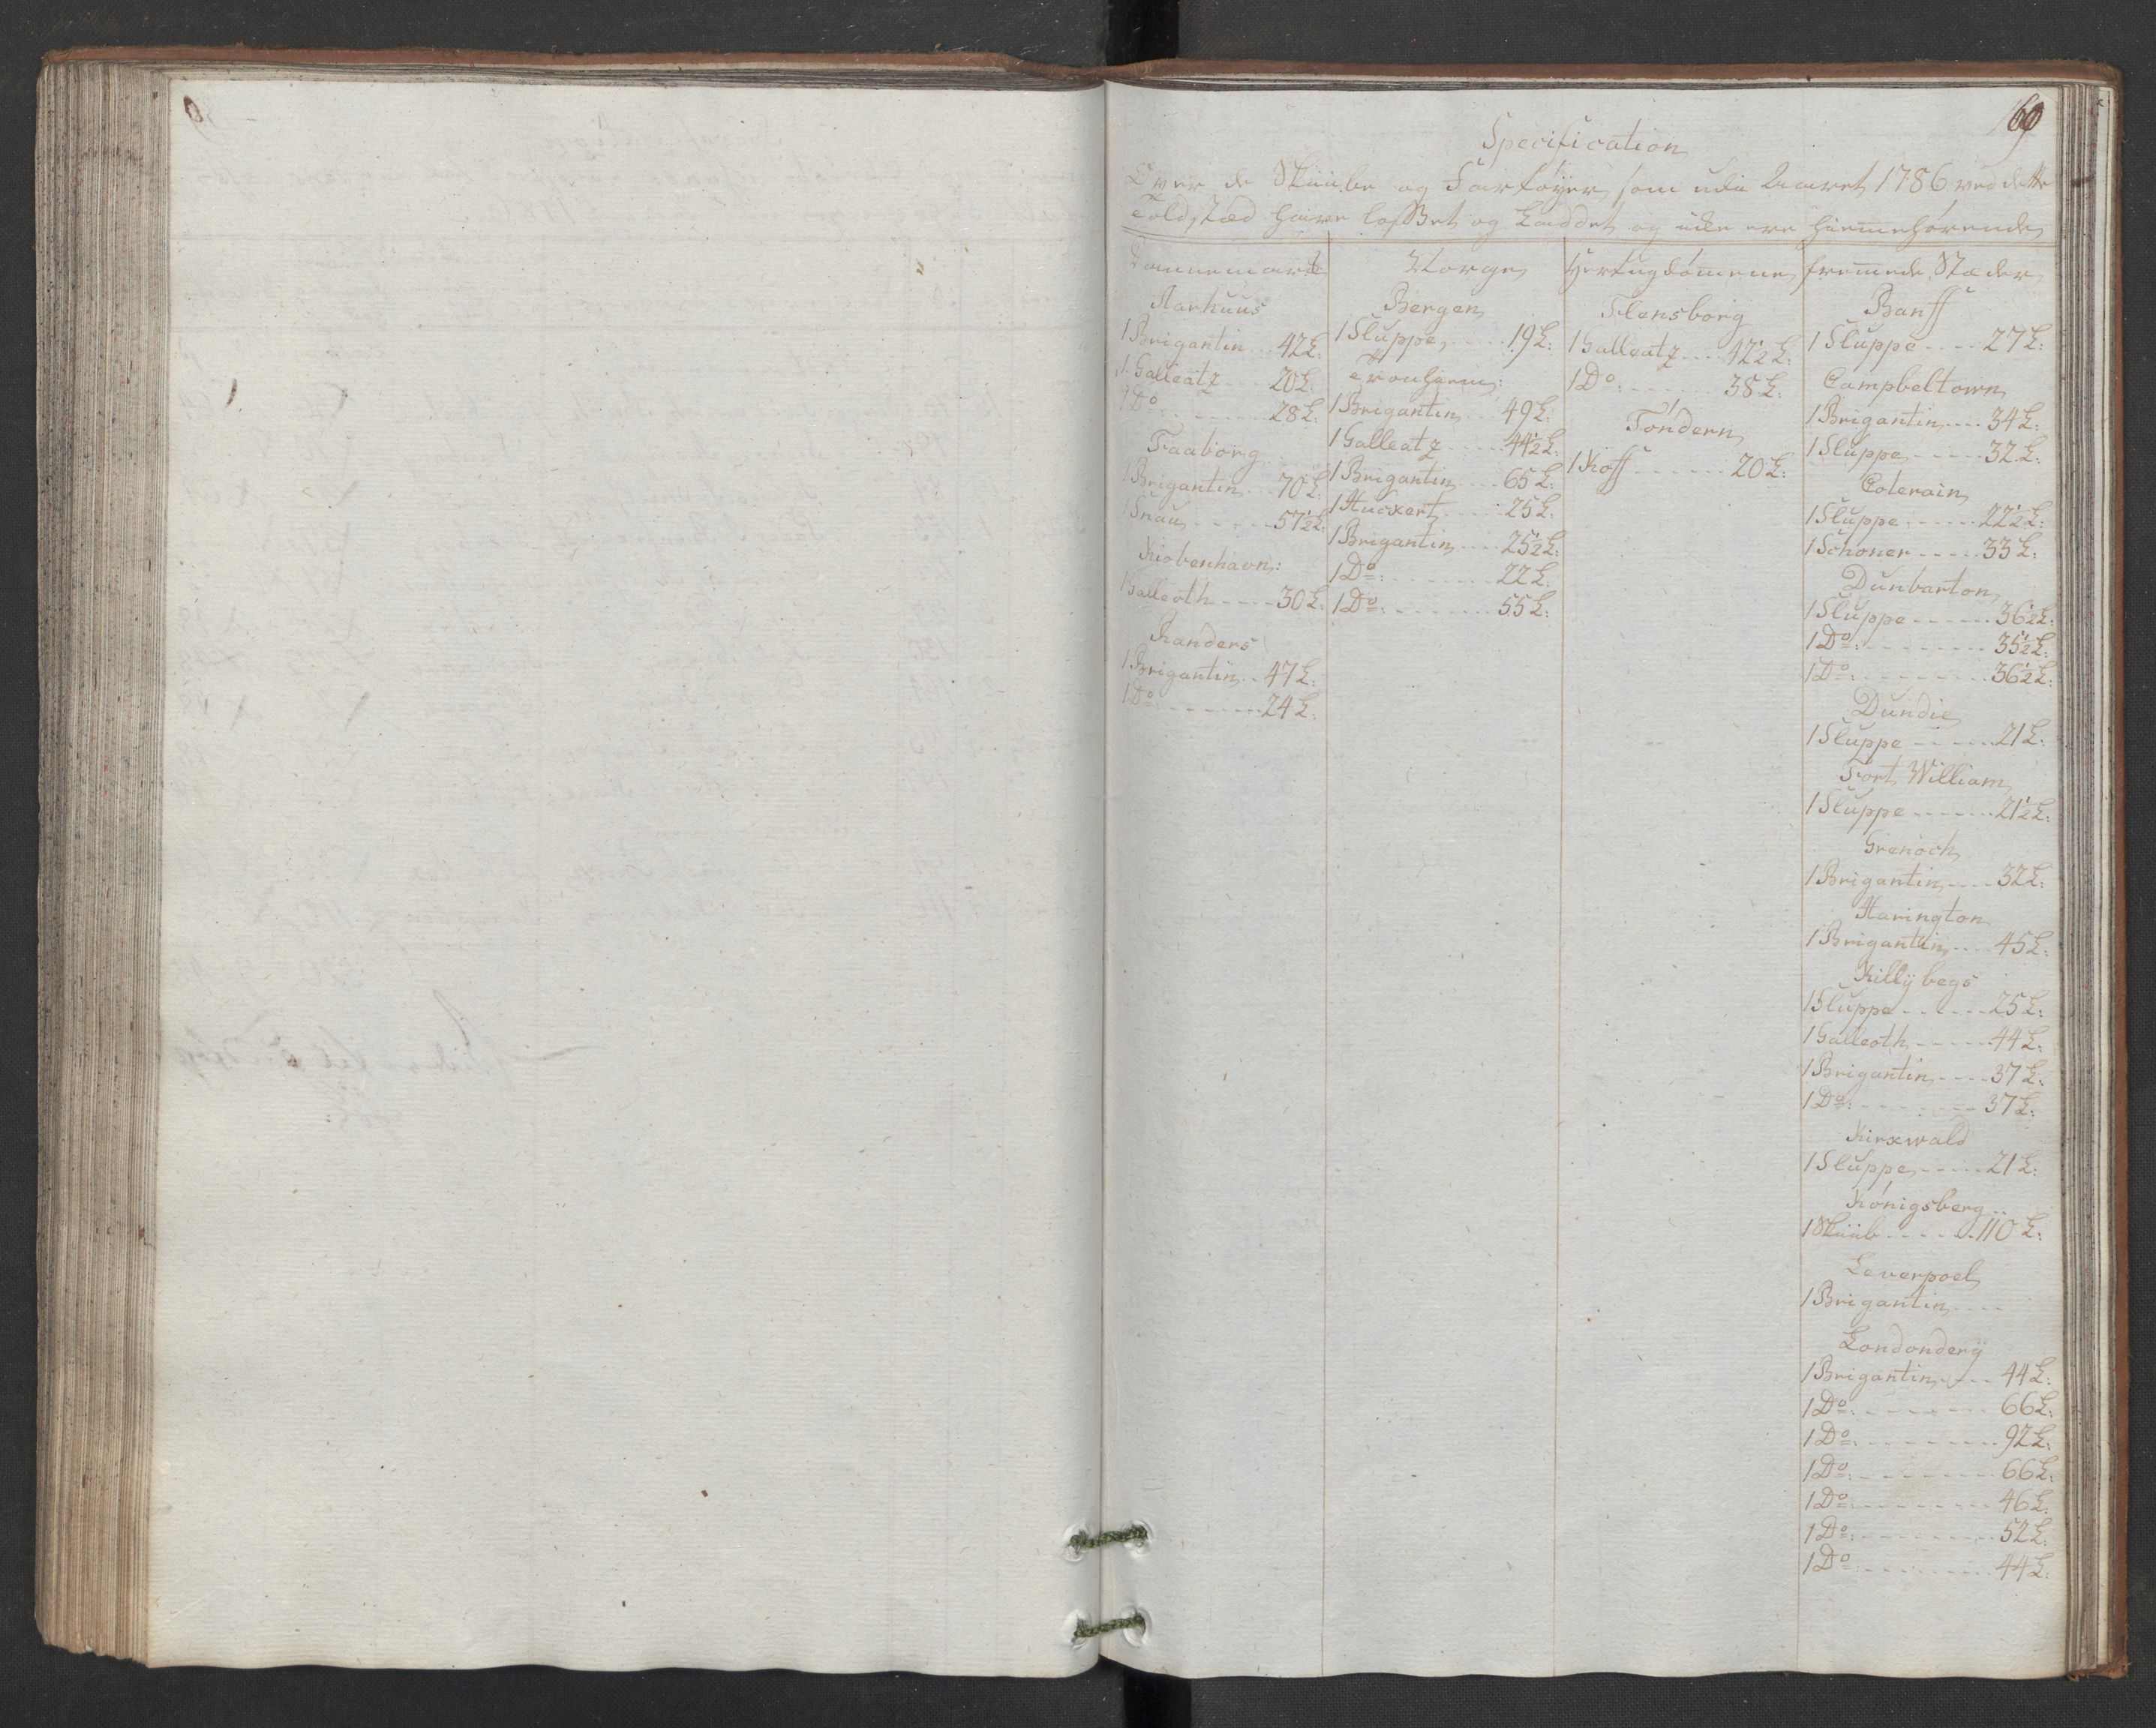 60
Specification
Over de Skiibe og Fartøyer, som udi Aaret 1786 ved dette
Toldstæd have losset og Laddet og icke ere hiemmehørende
Dannemark
Aarhuus
1 Brigantin .. 42 L:
1 Galleatz ... 20 L:
1 Do: ....... 28 L:
Faaborg
1 Brigantin .. 70 L:
1 Snau ..... 57½ L:
Kiøbenhavn:
1 Galleoth .... 30 L:
Randers
1 Brigantin .. 47 L:
1 Do: ....... 24 L:
Norge
Bergen
1 Sluppe ..... 19 L:
Tronhiem:
1 Brigantin .. 49 L:
1 Galleatz .... 44½ L:
1 Brigantin ... 65 L:
1 Huckert .... 25 L:
1 Brigantin ... 25½ L:
1 Do: ....... 22 L:
1 Do: ....... 55 L:
Hertugdømmene
Flensborg
1 Galleatz .... 42½ L:
1 Do: ....... 38 L:
Tøndern
1 Koff ...... 20 L:
fremmede Stæder
Banff
1 Sluppe .... 27 L:
Campbeltown
1 Brigantin .... 34 L:
1 Sluppe ..... 32 L:
Colerain
1 Sluppe ..... 22½ L:
1 Schoner ..... 33 L:
Dunbarton
1 Sluppe ...... 36½ L:
1 Do: ........ 35½ L:
1 Do: ........ 36½ L:
Dundie
1 Sluppe ..... 21 L:
Fort William
1 Sluppe ...... 21½ L:
Grenoch
1 Brigantin .... 32 L:
Harington
1 Brigantin .... 45 L:
Killÿbegs
1 Sluppe ..... 25 L:
1 Galleoth ..... 44 L:
1 Brigantin .... 37 L:
1 Do: ....... 37 L:
Kirxwald
1 Sluppe ..... 21 L:
Königsberg
1 Skiib ..... 110 L:
Leverpoel
1 Brigantin ....
Londonderÿ
1 Brigantin .... 44 L:
1 Do: ....... 66 L:
1 Do: ........ 92 L:
1 Do: ........ 66 L:
1 Do: ........ 46 L:
1 Do: ........ 52 L:
1 Do: ........ 44 L: